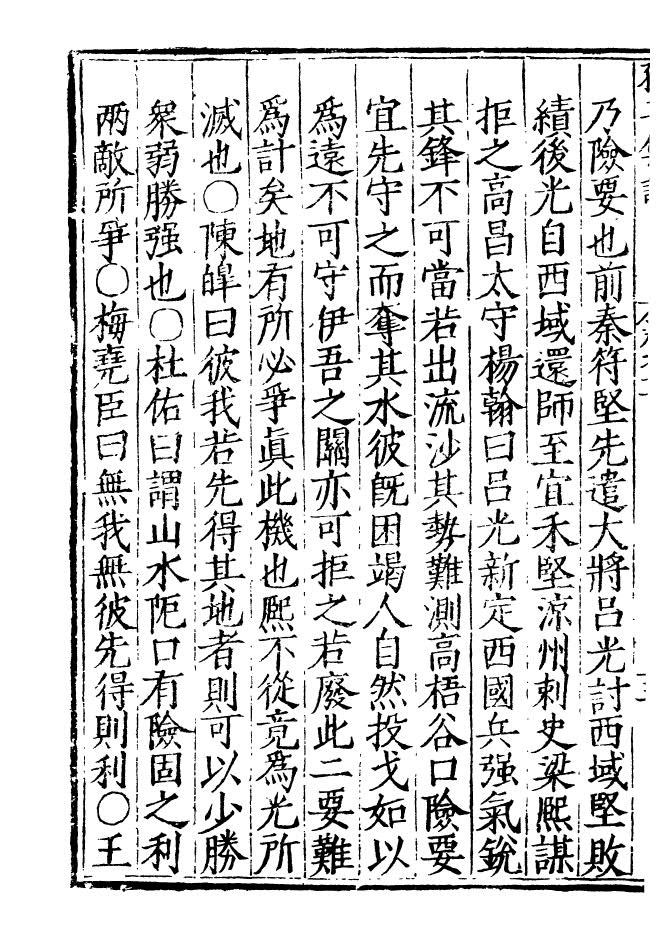 乃險要也前秦符堅先遣大將呂光討西域堅敗
績後光自西域還師至宜禾堅涼州刺史梁熙謀
拒之高昌太守楊翰曰呂光新定西國兵强氣銳
其鋒不可當若出流沙其勢難測高梧谷口險要
宜先守之而奪其水彼旣困竭人自然投戈如以
為遠不可守伊吾之關亦可拒之若廢此二要難
為計矣地有所必爭眞此機也熙不從竟為光所
滅也○陳皥曰彼我若先得其地者則可以少勝
衆弱勝强也○杜佑曰謂山水阨口有險固之利
兩敵所爭○梅堯臣曰無我無彼先得則利○王